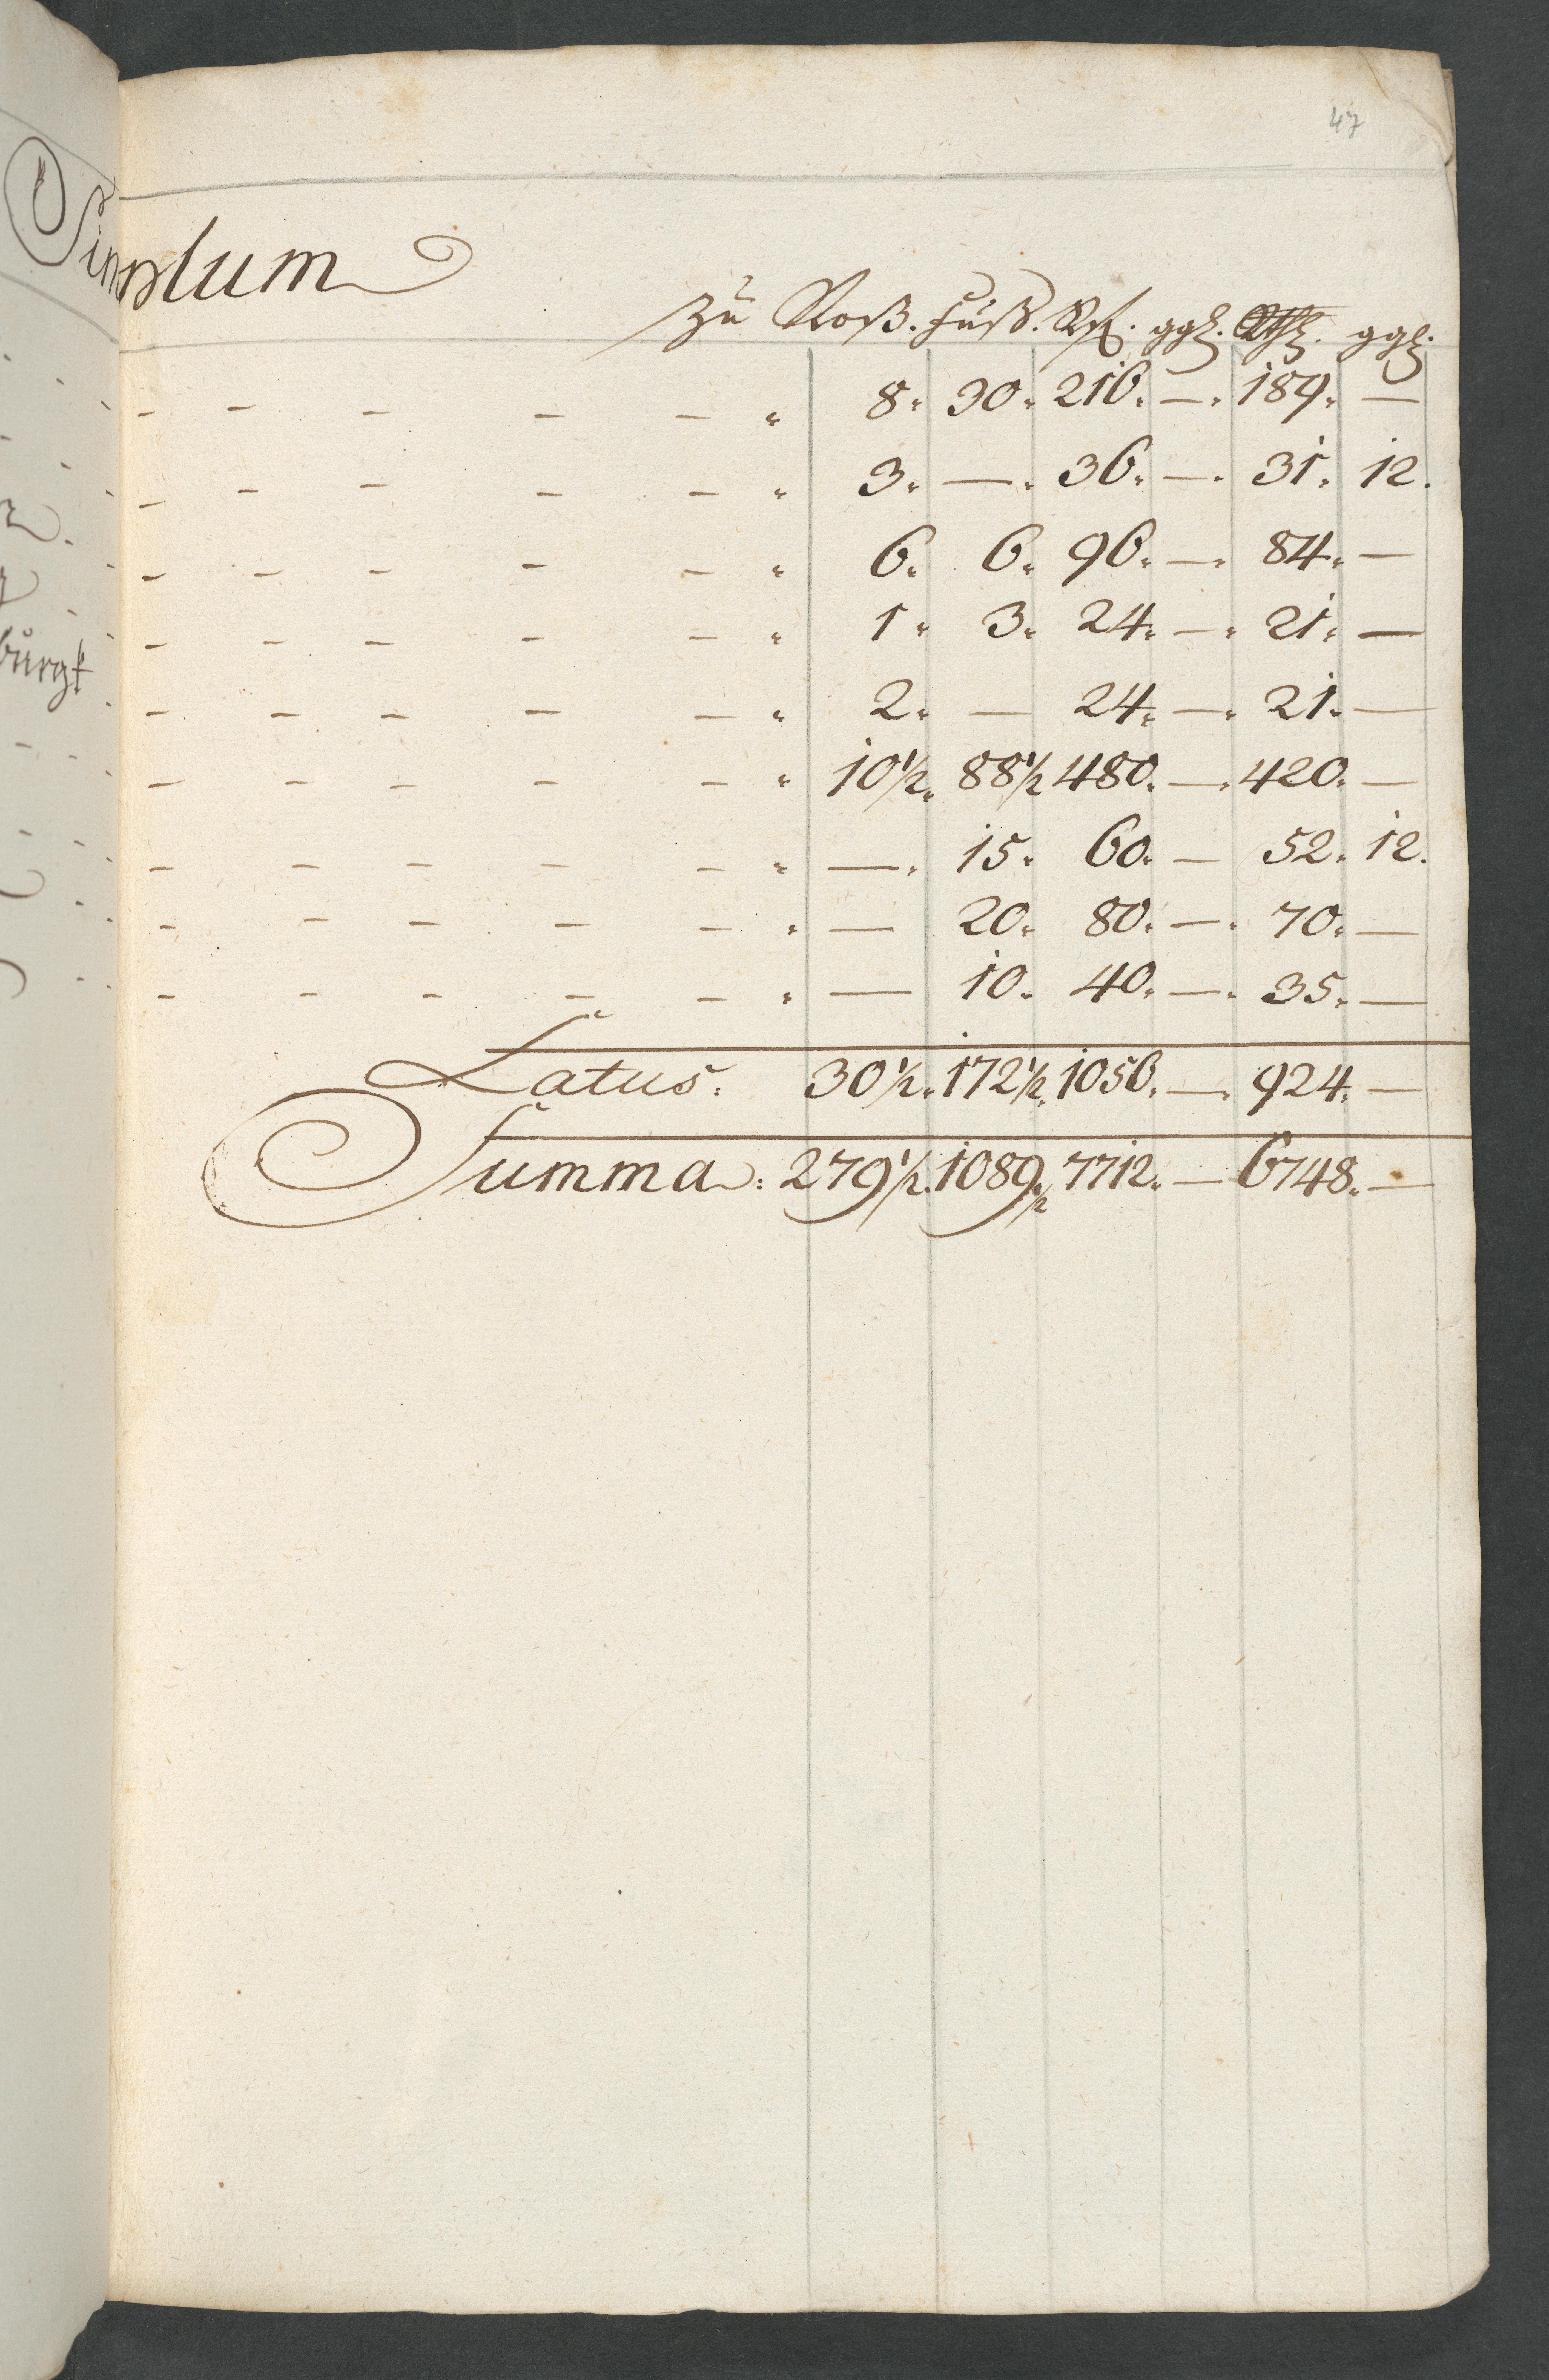 47
Simplum
zu Roß. Fuß. Rf. ggl. Rthl. ggl.
8. 30. 216. —. 189. —
3. —. 36. —. 31. 12.
6. 6. 96. —. 84. —
1. 3. 24. —. 21. —
2. — 24. —. 21. —
10 1/2. 88 1/2 480. —. 420. —
—. 15. 60. — 52. 12.
— 20. 80. —. 70. —
— 10. 40. —. 35. —
Latus. 30 1/2. 172 1/2. 1056. —. 924. —
Summa: 279 1/2. 1089 1/2. 7712. — 6748. —
burgk